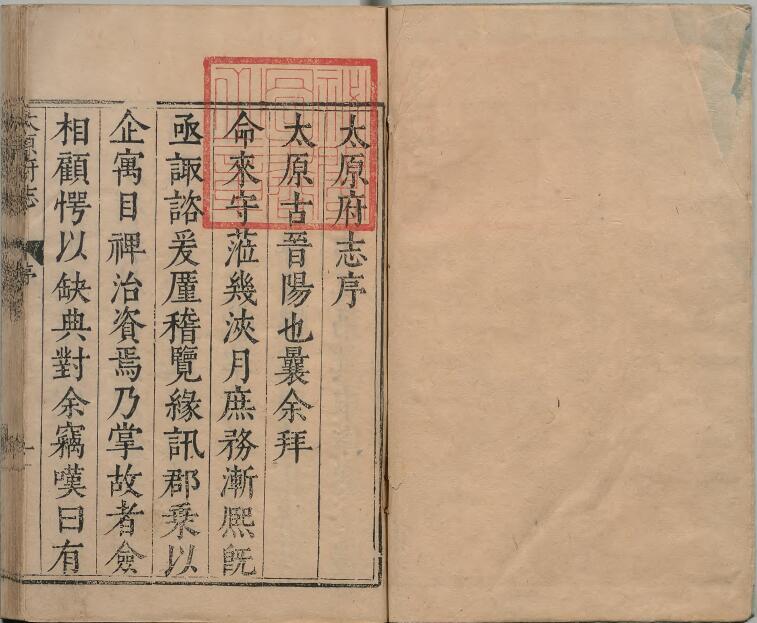 太原府志序
太原古晉陽也曩余拜
命來守蒞幾浹月庶務漸熈旣
亟諏諮爰厪稽覽緣訊郡乗以
企寓目裨治資焉乃掌故者僉
相顧愕以缺典對余竊嘆曰有
太原府志 序 一